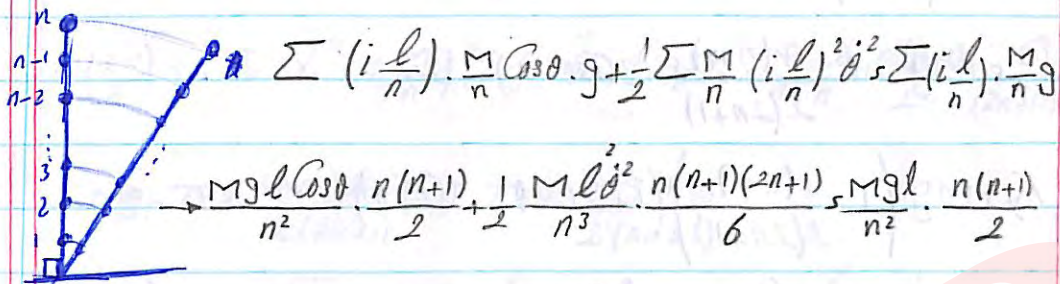 n
n-1
n-2
⋮
3
2
1
Σ (i l/n) · M/n Cosθ · g + 1/2 Σ M/n (i l/n)² θ̇² = Σ (i l/n) · M/n g
→ Mgl Cosθ/n² · n(n+1)/2 + 1/2 M l² θ̇²/n³ · n(n+1)(2n+1)/6 = Mgl/n² · n(n+1)/2